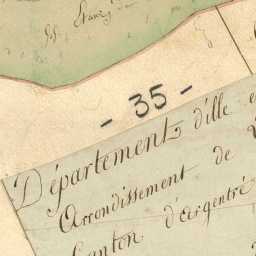 - 35 -
Département d'ille e
Arrondissement de
Canton d'argentré